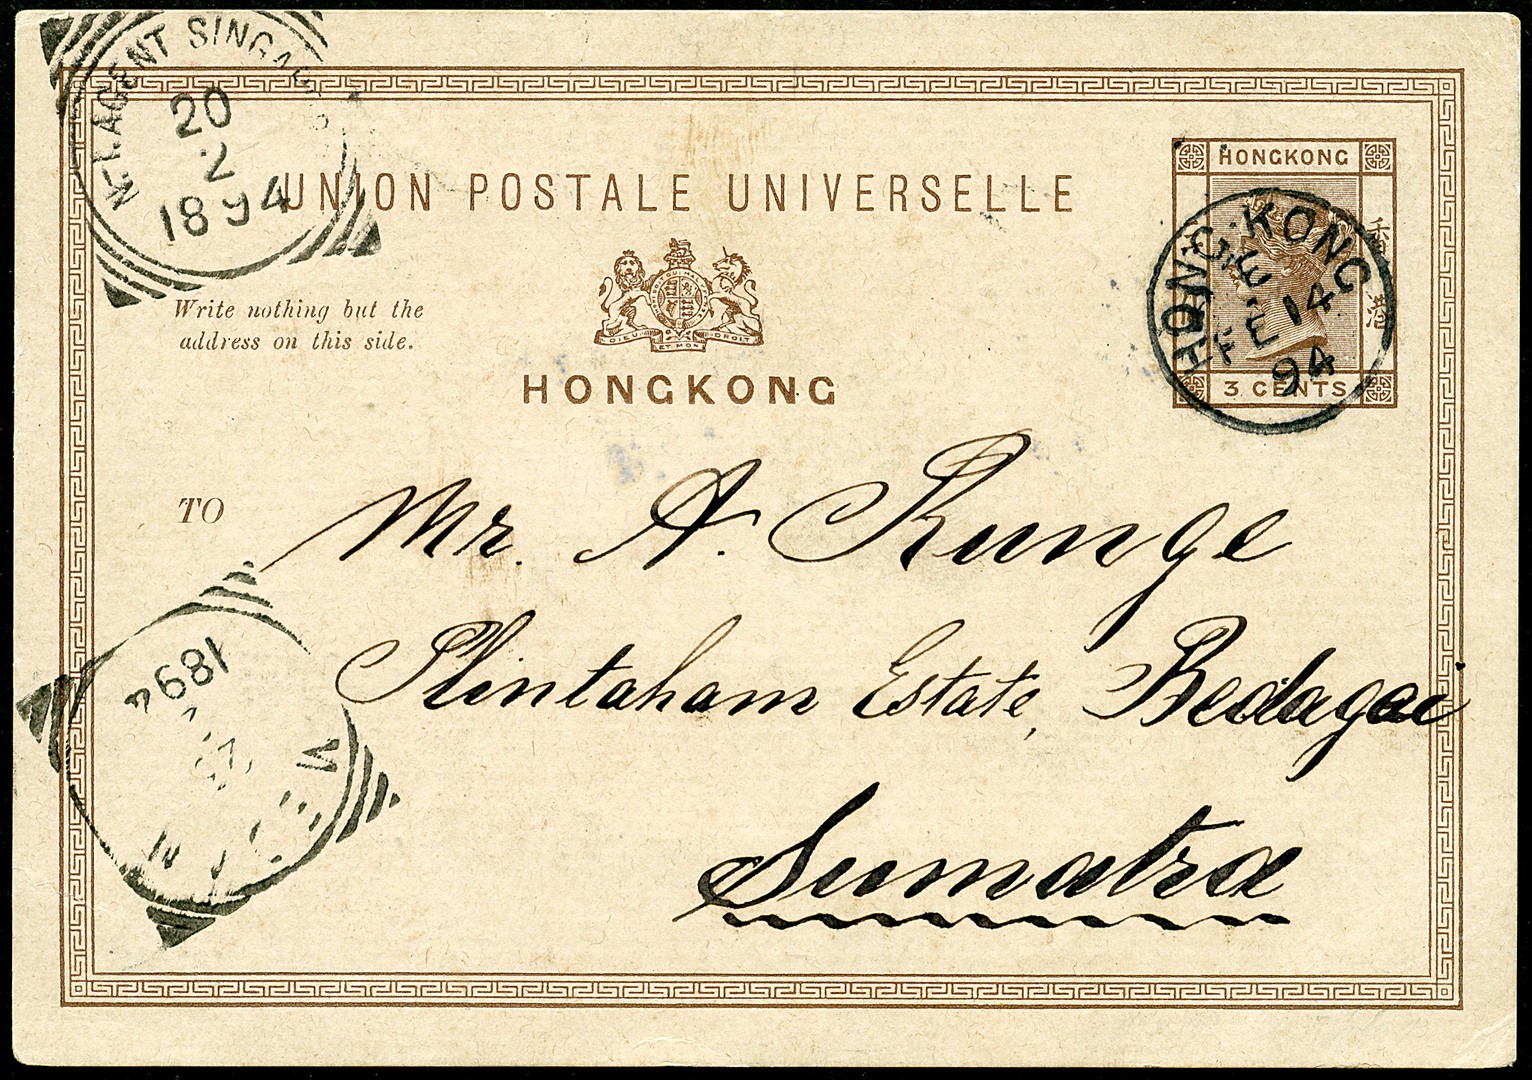 N-I. AGENT SINGAPORE
20
2
1894
UNION POSTALE UNIVERSELLE
HONGKONG
香港
3 CENTS
HONG-KONG
FE 14
94
Write nothing but the
address on this side.
DIEU ET MON DROIT
HONGKONG
TO
Mr. A. Runge
Plintaham Estate, Bedagei
Sumatra
1894